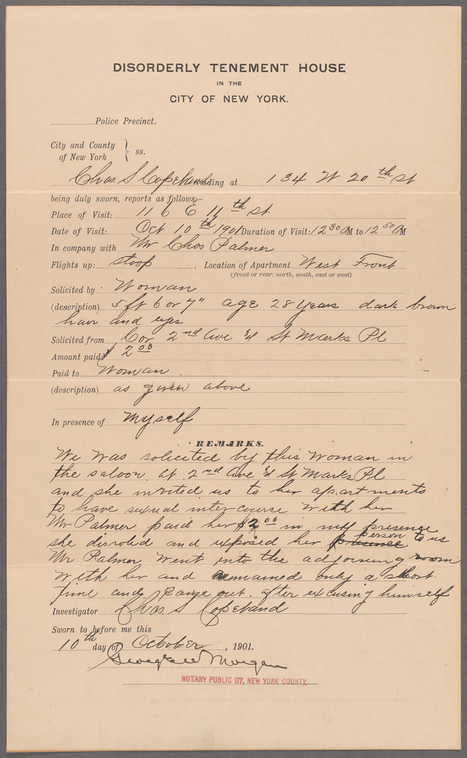 DISORDERLY TENEMENT HOUSE
IN THE
CITY OF NEW YORK.
Police Precinct.
City and County
of New York } ss.
Chas S Copeland residing at 134 W 20th St
being duly sworn, reports as follows:-
Place of Visit: 116 E 11th St.
Date of Visit: Oct 10th 1901 Duration of Visit: 12 30 AM to 12 50 AM
In company with Mr Chas Palmer
Flights up: Stoop . Location of Apartment West Front
(front or rear: north, south, east or west)
Solicited by Woman
(description) 5 ft 6 or 7" age 28 Years dark brown
hair and eyes
Solicited from Cor 2nd Ave & St Marks Pl
Amount paid $ 2 00
Paid to Woman
(description) as given above
In presence of Myself
REMARKS.
We was solicited by this Woman in
the saloon at 2nd Ave & St Marks Pl
and she invited us to her apartments
to have sexual intercourse with her
Mr Palmer paid her $2 00 in my presence
she disrobed and exposed her person to us
Mr Palmer went into the adjoining room
with her and remained only a short
time and came out after excusing himself
Investigator Chas S Copeland
Sworn to before me this
10th day of October , 1901.
George W Morgan
NOTARY PUBLIC 177, NEW YORK COUNTY.